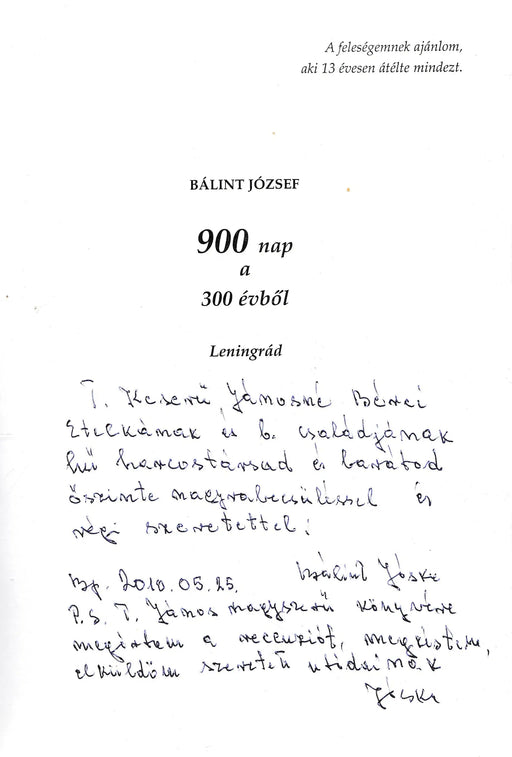 A feleségemnek ajánlom,
aki 13 évesen átélte mindezt.
BÁLINT JÓZSEF
900 nap
a
300 évből
Leningrád
T. Keserű Jánosné Bérci
Etelkának és b. családjának
hű harcostársad és barátod
őszinte nagyrabecsüléssel és
régi szeretettel:
Bp. 2010.05.25. Bálint Jóska
P.S. T. János nagyszerű könyvére
megírtam a recenziót,
elküldöm szeretett
Jóska